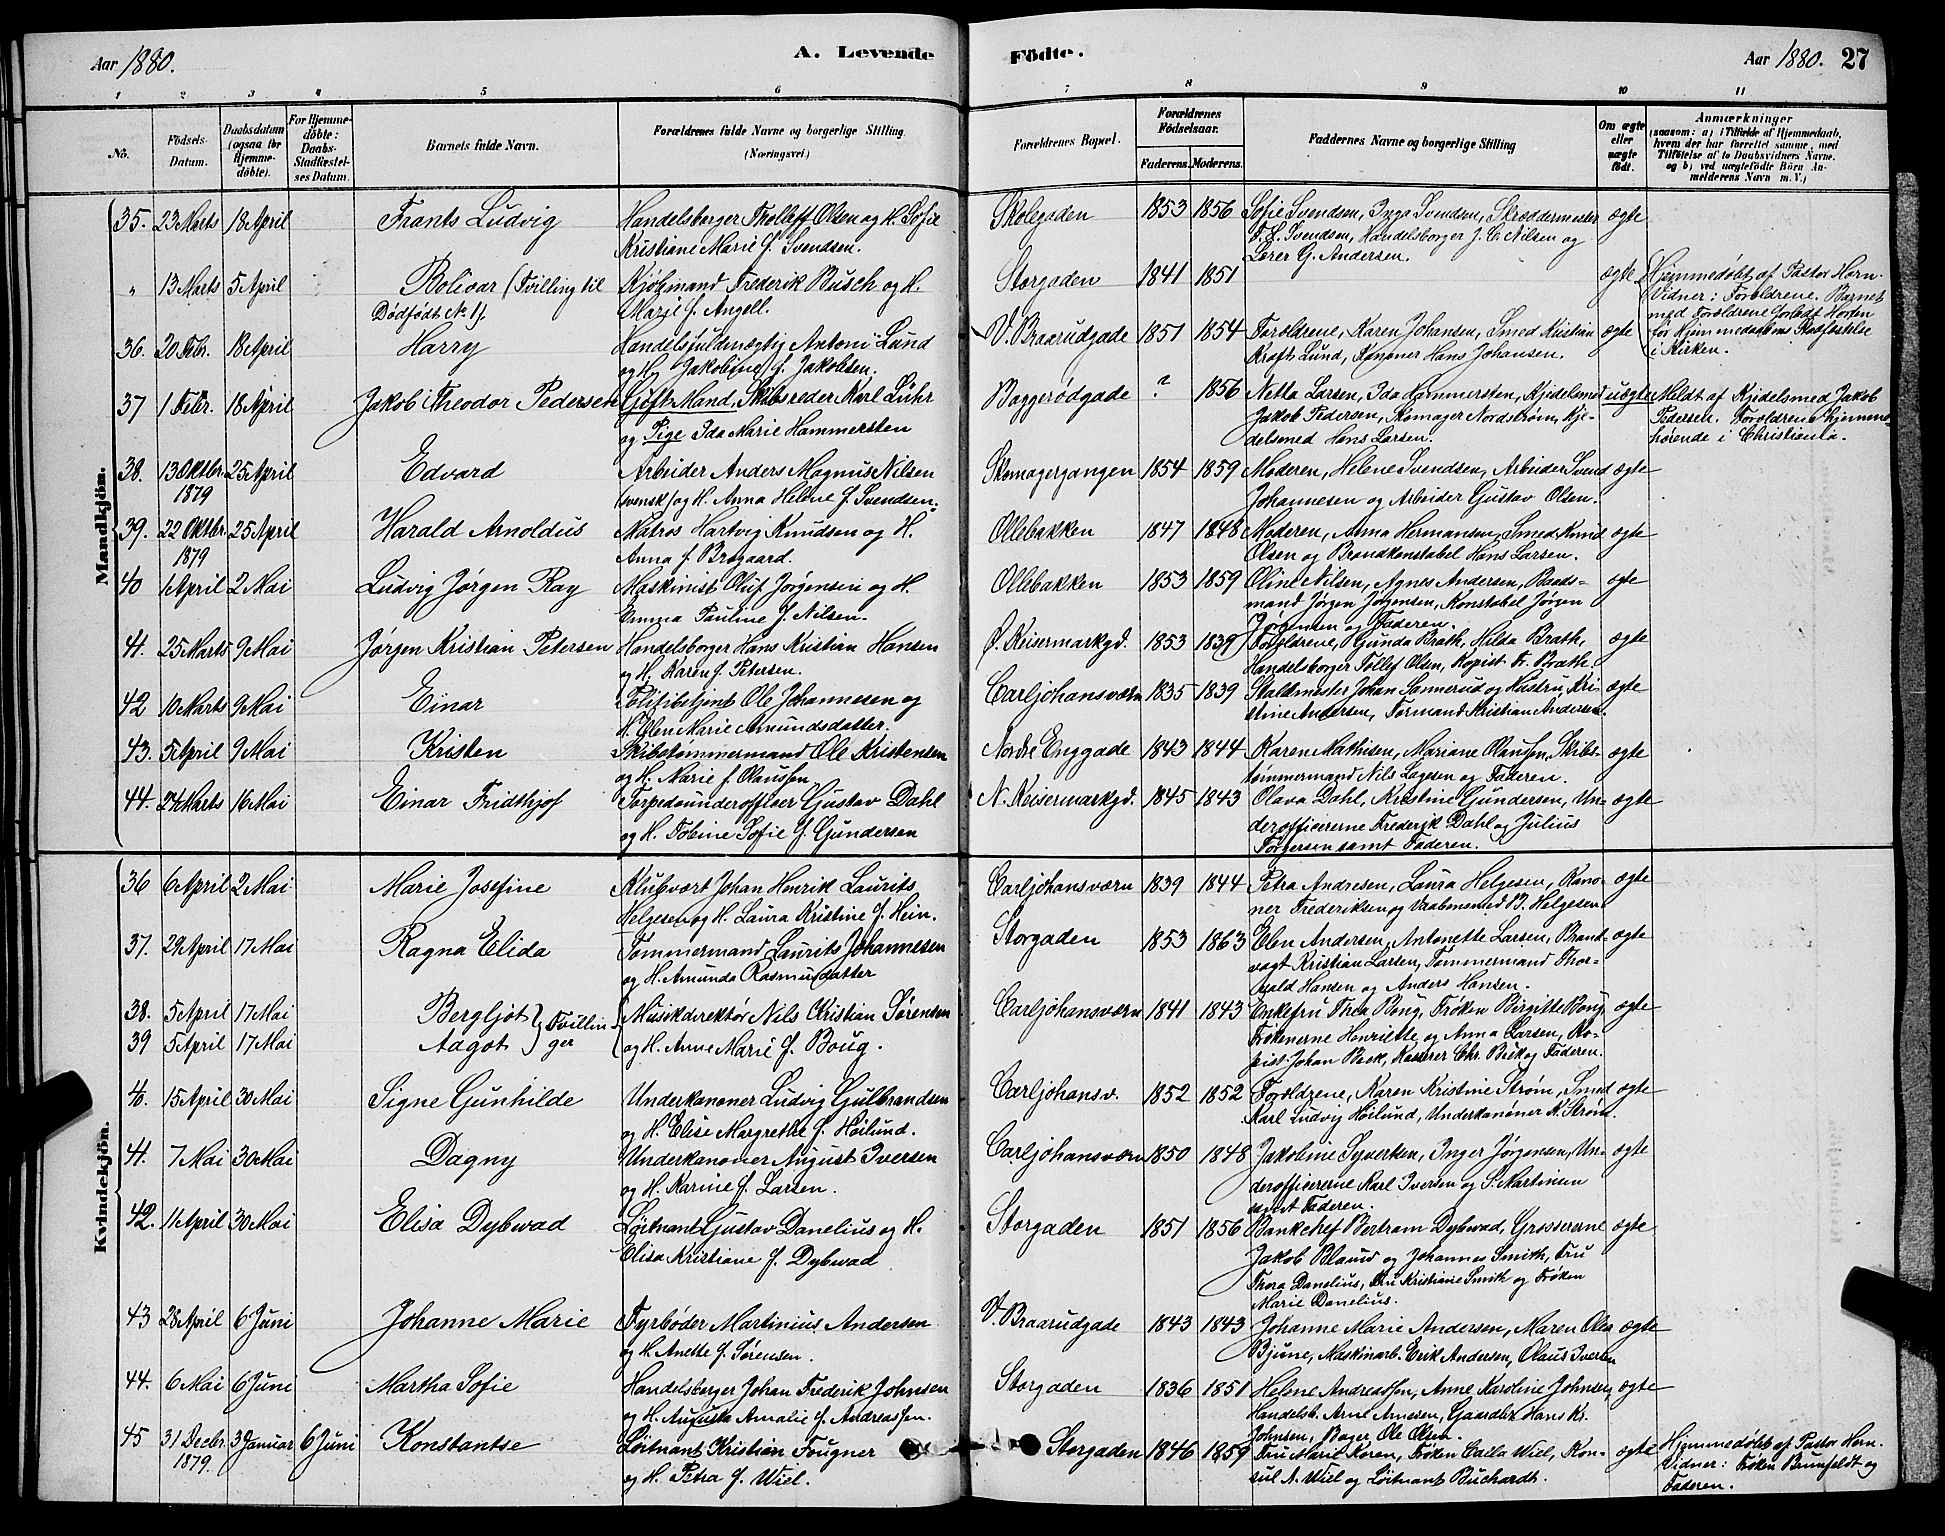 Aar 1880.
A. Levende
Födte.
Aar 1880. 27
1 2 3 4 5 6 7 8 9 10 11
No.
Födsels-Datum.
Daabsdatum (ogsaa for Hjemme-döbte).
For Hjemme-döbte: Daabs-Stadfæstel-ses Datum.
Barnets fulde Navn.
Forældrenes fulde Navne og borgerlige Stilling. (Næringsvei.)
Forældrenes Bopæl.
Forældrenes Födselsaar.
Faderens. Moderens.
Faddernes Navne og borgerlige Stilling
Om ægte eller uægte født.
Anmærkninger
(saasom: a) i Tilfælde af Hjemmedaab, hvem der har forrettet samme, med Tilföielse af to Daabsvidners Navne, og b) ved uægtefödte Börn An-melderens Navn m. V.)
Mandkjön.
35. 23 Marts 18 April Frants Ludvig Handelsborger Tholleff Olsen og H. Sofie Skolegaden 1853 1856 Sofie Svendsen, Inga Svendsen, Skræddermester ægte
Kristiane Marie f. Svendsen. Svendsen, Handelsborger J. C. Nilsen og
Lærer G. Andersen.
" 13 Marts 5 April Bolivar (Tvilling til Kjøbmand Frederik Busch og H. Storgaden 1841 1851 ægte Hjemmedøbt af Pastor Horn.
Dødfødt No 1). Marie f. Angell. Vidner: Forældrene. Barnet
med Forældrene forladt Horten
før Hjemmedaabens Stadfæstelse
i Kirken.
36. 20 Febr. 18 April Harry Handelsfuldmægtig Antoni Lund V. Braarudgade 1851 1854 Forældrene, Karen Johansen, Smed Kristian ægte
og H. Jakobine f. Jakobsen. Kraft Lund, Kanoner Hans Johansen.
37 1 Febr. 18 April Jakob Theodor Pedersen Gift Mand, Skibsreder Karl Lühr Baggerødgade ? 1856 Netta Larsen, Ida Hammersten, Kjedelsmed uægte Meldt af Kjedelsmed Jakob
og Pige Ida Marie Hammersten Jakob Pedersen, Skomager Nordstrøm, Kje- Pedersen. Forældrene hjemme-
delsmed Hans Larsen. hørende i Christiania.
38. 13 Oktbr. 25 April Edvard Arbeider Anders Magnus Nilsen Skomagergangen 1854 1859 Moderen, Helene Svendsen, Arbeider Svend ægte
1879 (svensk) og H. Anna Helene f. Svendsen. Johannesen og Arbeider Gustav Olsen.
39. 22 Oktbr. 25 April Harald Arnoldus Matros Hartvig Knudsen og H. Ollebakken 1847 1848 Moderen, Anna Hermansen, Smed Knud ægte
1879 Anna f. Brogaard. Olsen og Brandkonstabel Hans Larsen.
40 1 April 2 Mai Ludvig Jørgen Ray Maskinist Oluf Jørgensen og H. Ollebakken 1853 1859 Oline Nilsen, Agnes Andersen, Baads- ægte
Emma Pauline f. Nilsen. mand Jørgen Jørgensen, Konstabel Jørgen
Jørgensen og Faderen.
41. 25 Marts 9 Mai Jørgen Kristian Petersen Handelsborger Hans Kristian Hansen Ø. Keisermarkgd. 1853 1839 Forældrene, Gunda Brath, Hilda Brath, ægte
og H. Karen f. Petersen. Handelsborger Tollef Olsen, Kopist Fr. Brath.
42 10 Marts 9 Mai Einar Politibetjent Ole Johannesen og Carljohansværn 1835 1839 Staldmester Johan Sannerud og Hustru, Kri- ægte
H. Olen Marie Amundsdatter. stine Andersen, Formand Kristian Andersen.
43. 5 April 9 Mai Kristen Skibstømmermand Ole Kristensen Nordre Enggade 1843 1844 Karen Mathisen, Mariane Olaussen, Skibs- ægte
og H. Marie f. Olaussen tømmermand Nils Lagesen og Faderen.
44. 27 Marts 16 Mai Einar Fridthjof Torpedounderofficer Gustav Dahl N. Keisermarkgd. 1845 1843 Olava Dahl, Kristine Gundersen, Un- ægte
og H. Tobine Sofie f. Gundersen derofficererne Frederik Dahl og Julius
Torgersen samt Faderen.
Kvindekjön.
36 6 April 2 Mai Marie Josefine Klubvært Johan Henrik Laurits Carljohansværn 1839 1844 Petra Andresen, Laura Helgesen, Kano- ægte
Helgesen og H. Laura Kristine f. Hein. ner Frederiksen og Vaabensmed B. Helgesen
37. 29 April 17 Mai Ragna Elida Tømmermand Laurits Johannesen Storgaden 1853 1863 Elen Andersen, Antonette Larsen, Brand- ægte
og H. Amunda Rasmusdatter vagt Kristian Larsen, Tømmermand Thor-
vald Hansen og Anders Hansen.
38. 5 April 17 Mai Bergljot } Tvillin- Musikdirektør Nils Kristian Sørensen Carljohansværn 1841 1843 Enkefru Thea Boug, Frøken Birgitte Boug, ægte
39 5 April 17 Mai Aagot } ger og H. Anne Marie f. Boug. Frøknerne Henriette og Anna Larsen, Ko-
pist Johan Beck, Kasserer Chr. Beck og Faderen.
40. 15 April 30 Mai Signe Gunhilde Underkanoner Ludvig Gulbrandsen Carljohansv. 1852 1852 Forældrene, Karen Kristine Strøm, Smed ægte
og H. Elise Margrethe f. Høilund. Karl Ludvig Høilund, Underkanoner K. Strøm.
41. 7 Mai 30 Mai Dagny Underkanoner August Iversen Carljohansværn 1850 1848 Jakobine Syvertsen, Inger Jørgensen, Un- ægte
og H. Karine f. Larsen. derofficererne Karl Iversen og S. Martinsen
samt Faderen.
42. 11 April 30 Mai Elisa Dybwad Løitnant Gustav Danelius og H. Storgaden 1851 1856 Bankchef Bertram Dybwad, Grossererne ægte
Elisa Kristiane f. Dybwad Jakob Blaund og Johannes Smith, Fru
Thora Danelius, Fru Kristiane Smith og Frøken
Marie Danelius.
43 28 April 6 Juni Johanne Marie Fyrbøder Martinius Andersen V. Braarudgade 1843 1843 Johanne Marie Andersen, Maren Olea ægte
og H. Anette f. Sørensen. Bjune, Maskinarb. Erik Andersen, Olaus Iversen
44. 6 Mai 6 Juni Martha Sofie Handelsborger Johan Frederik Johnsen Storgaden 1836 1851 Helene Andreassen, Anne Karoline Johnsen, ægte
og H. Augusta Amalie f. Andreassen. Handelsb. Arne Arnesen, Gaardbr. Hans Kr.
Johnsen, Bager Ole Olsen.
45 31 Decbr. 3 Januar 6 Juni Konstantse Løitnant Kristian Fougner Storgaden 1846 1859 Fru Marie Koren, Frøken Calla Wiel, Kon- ægte Hjemmedøbt af Pastor Horn.
1879. og H. Petra f. Wiel. sul A. Wiel og Løitnant Buchardt. Vidner: Frøken Brunfeldt og
Faderen.